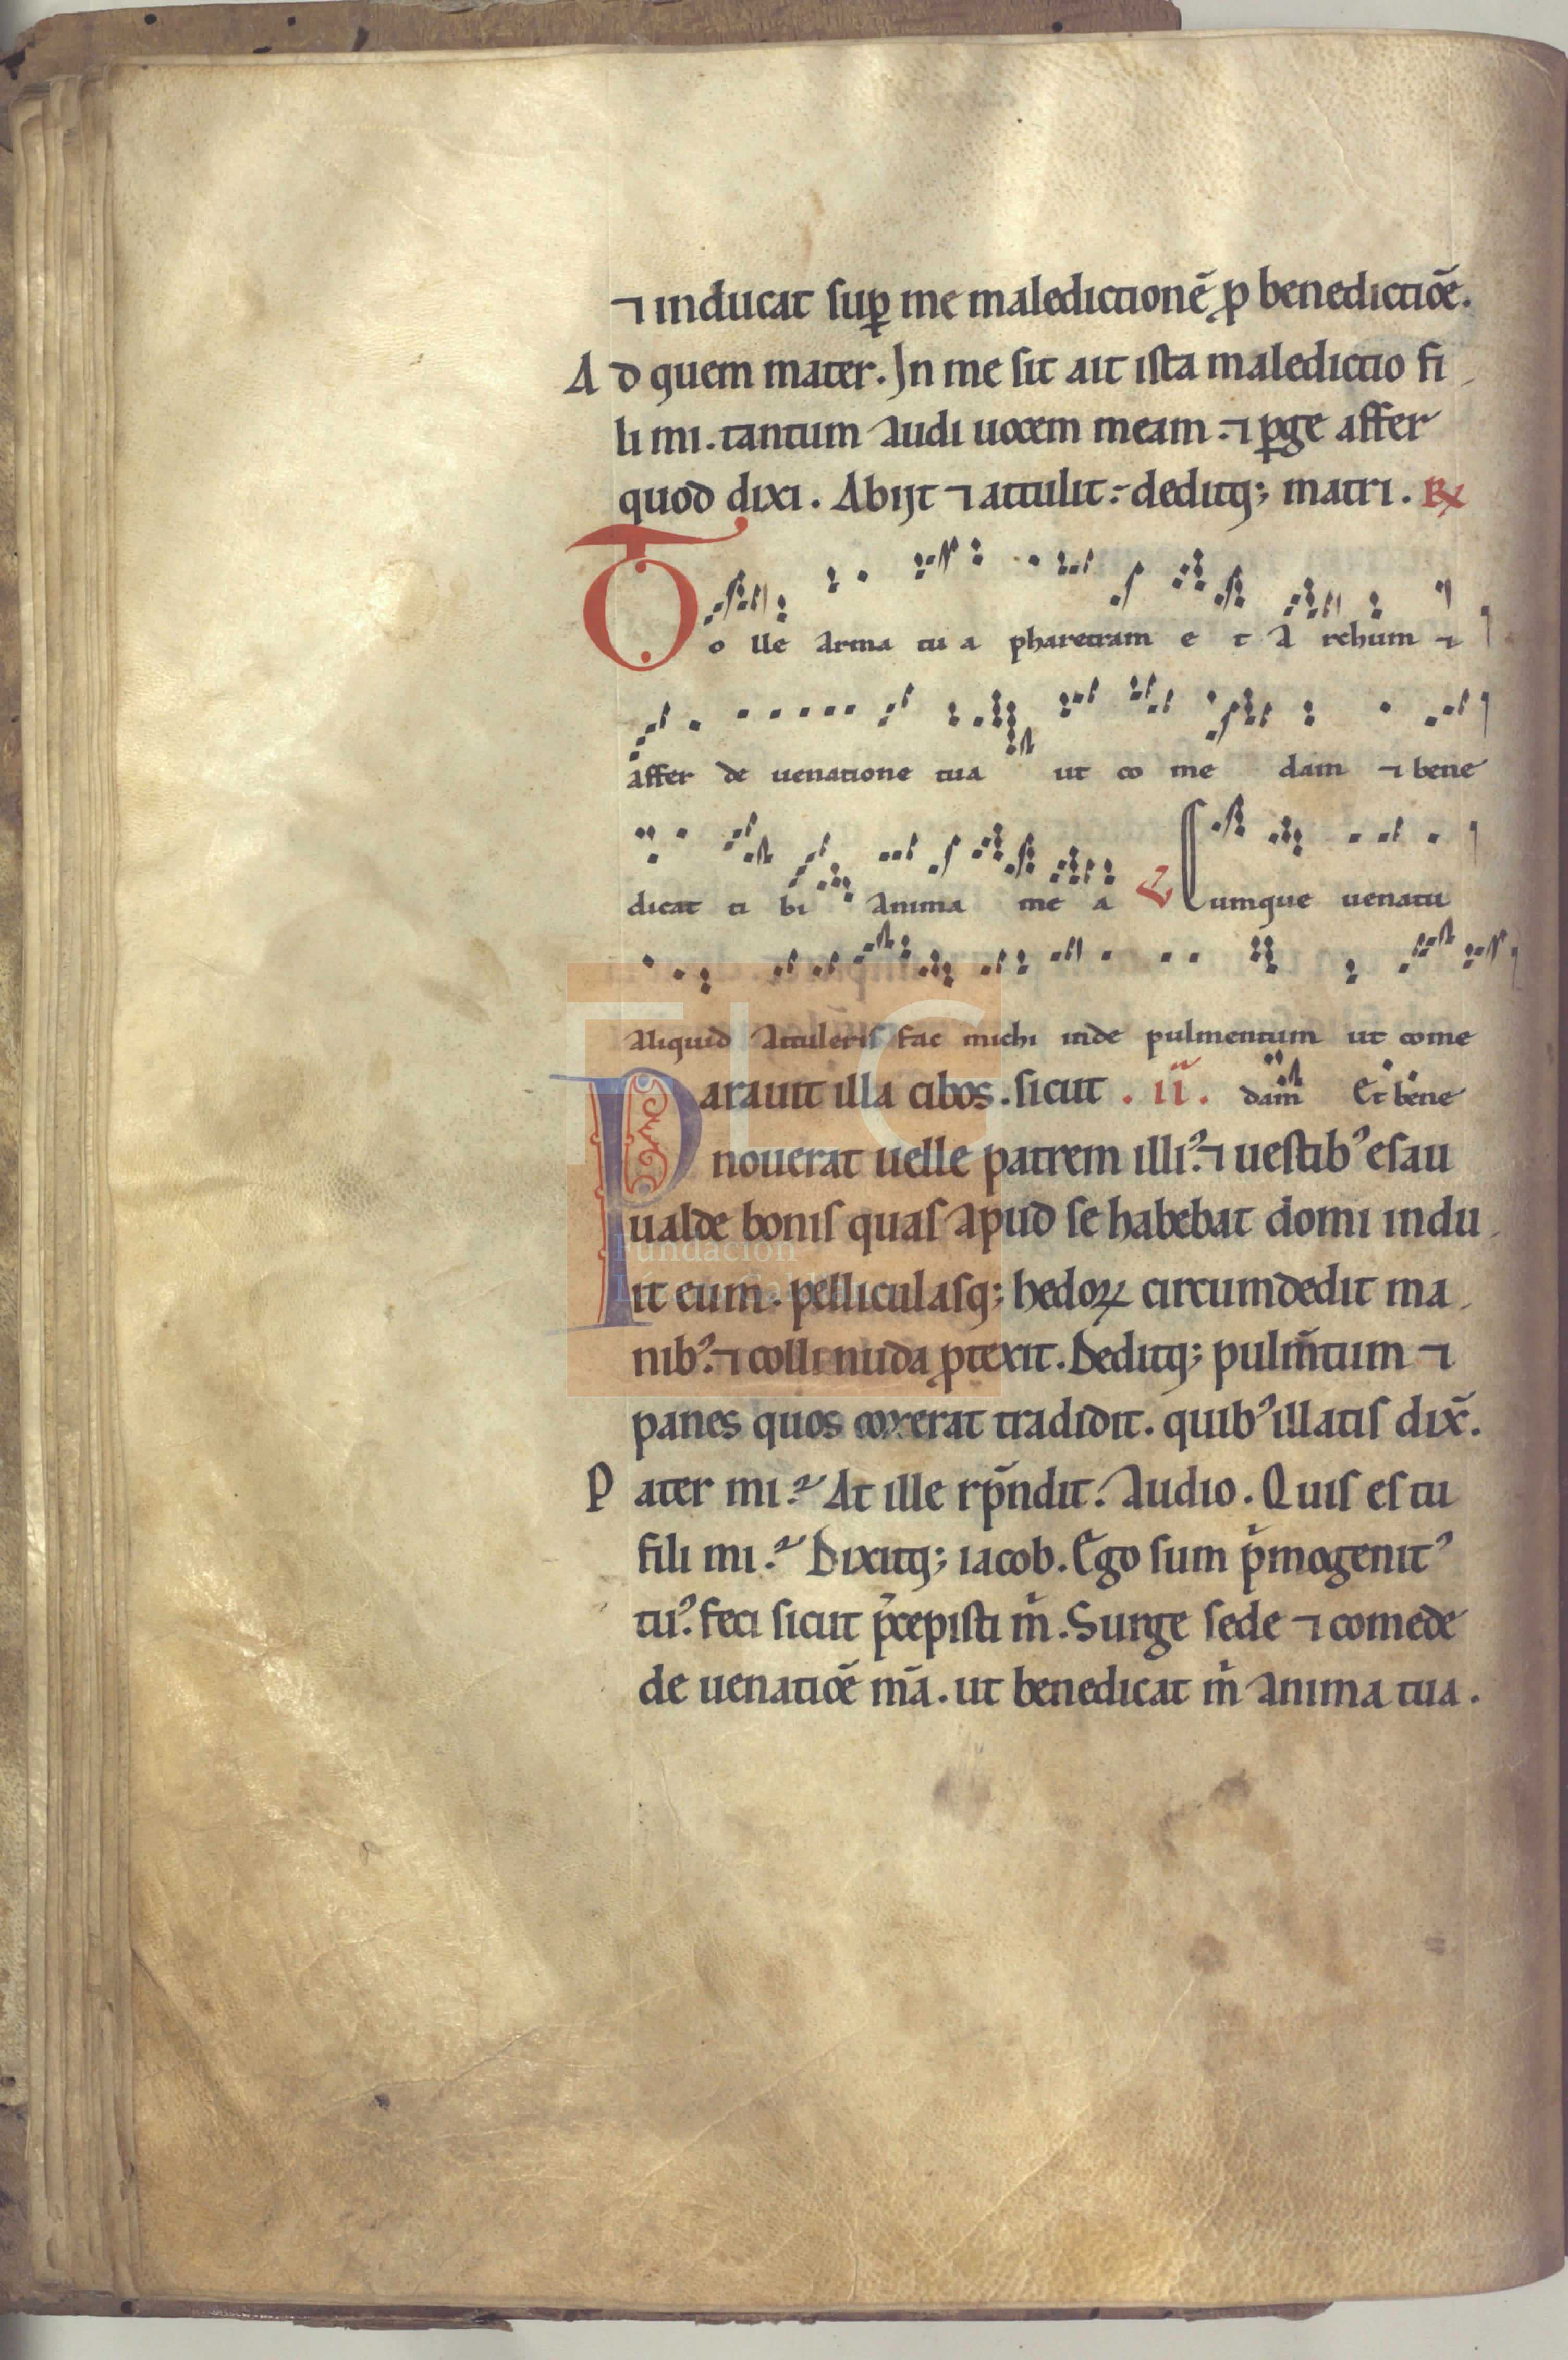 ⁊ inducat sup̱ me maledictionē ꝓ benedictiōe.
Ad quem mater. In me sit ait ista maledictio fi
li mi. tantum audi uocem meam. ⁊ ꝑge affer
quod dixi. Abijt ⁊ attulit. deditq; matri. ℟
Tolle arma tu a pharetram e t a rchum ⁊
affer de uenatione tua ut co me dam ⁊ bene
dicat ti bi anima me a ℣ Cumque uenatu
aliquid attuleris fac michi inde pulmentum ut come
Parauit illa cibos. sicut . ii . dam Et bene
nouerat uelle patrem illiꝰ. ⁊ uestibꝰ esau
ualde bonis quas apud se habebat domi indu
it eum. pelliculasq; hedoꝝ circumdedit ma
nibꝰ. ⁊ colli nuda ꝓtexit. Deditq; pulm̄tum ⁊
panes quos coxerat tradidit. quibꝰ illatis dix̄.
Pater mi. At ille rp̄ndit. Audio. Quis es tu
fili mi. Dixitq; iacob. Ego sum pͥmogenitꝰ
tuꝰ. feci sicut p̄cepisti m̍. Surge sede ⁊ comede
de uenatiōe mā. ut benedicat m̍ anima tua.
Fundación